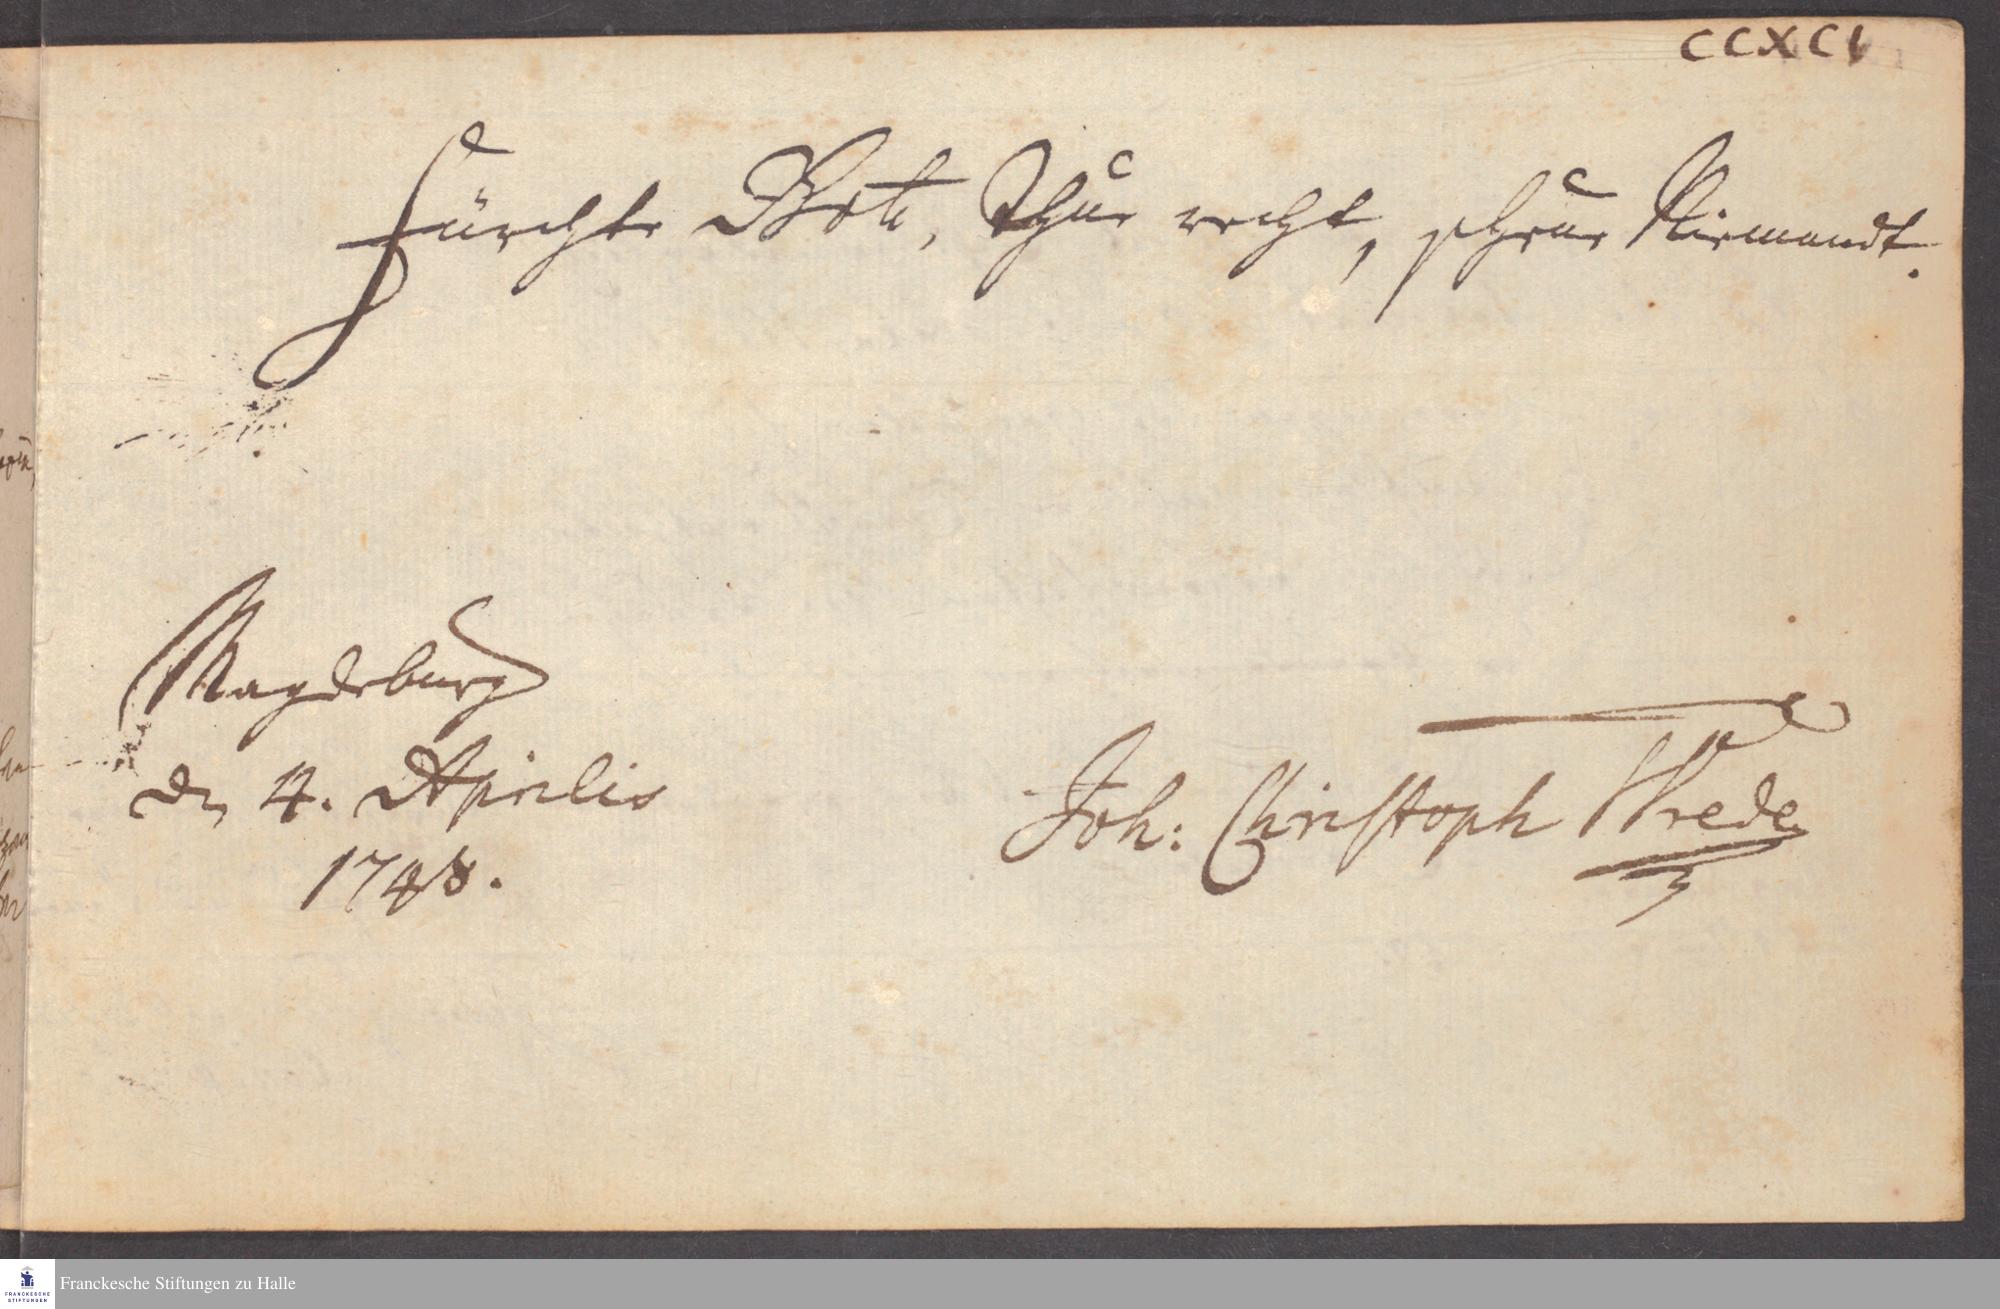 CCXCI
Fürchte Gott, Thue recht, scheue Niemandt.
Magdeburg
den 4. Aprilis
1748.
Joh: Christoph Wrede
Franckesche Stiftungen zu Halle
FRANCKESCHE
STIFTUNGEN